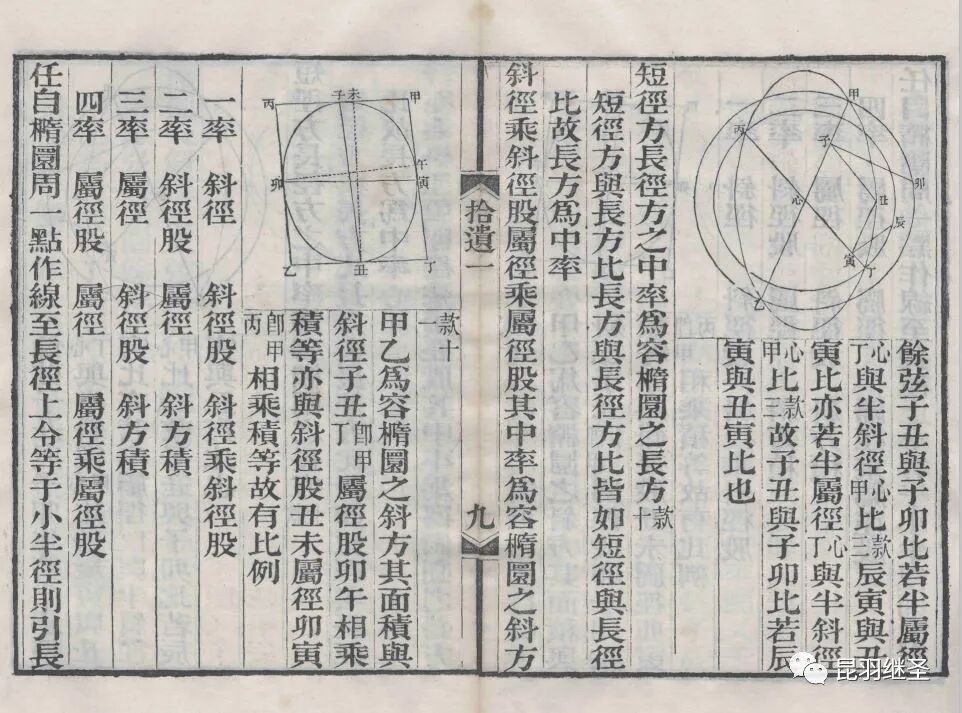 甲
子
丙
卯
心
丑
辰
寅
丁
乙
餘弦子丑與子卯比若半屬徑
心丁與半斜徑心甲比款三辰寅與丑
寅比亦若半屬徑心丁與半斜徑
心甲比款三故子丑與子卯比若辰
寅與丑寅比也
短徑方長徑方之中率爲容橢圜之長方款十
短徑方與長方比長方與長徑方比皆如短徑與長徑
比故長方爲中率
斜徑乘斜徑股屬徑乘屬徑股其中率爲容橢圜之斜方
拾遺一
九
款十一
甲乙爲容橢圜之斜方其面積與
斜徑子丑卽甲丁屬徑股卯午相乘
積等亦與斜徑股丑未屬徑卯寅
卽甲丙相乘積等故有比例
甲
未
子
丙
午
寅
卯
丁
丑
乙
一率 斜徑 斜徑股 斜徑乘斜徑股
二率 斜徑股 屬徑 斜方積
三率 屬徑 斜徑股 斜方積
四率 屬徑股 屬徑 屬徑乘屬徑股
任自橢圜周一點作線至長徑上令等于小半徑則引長
昆羽继圣